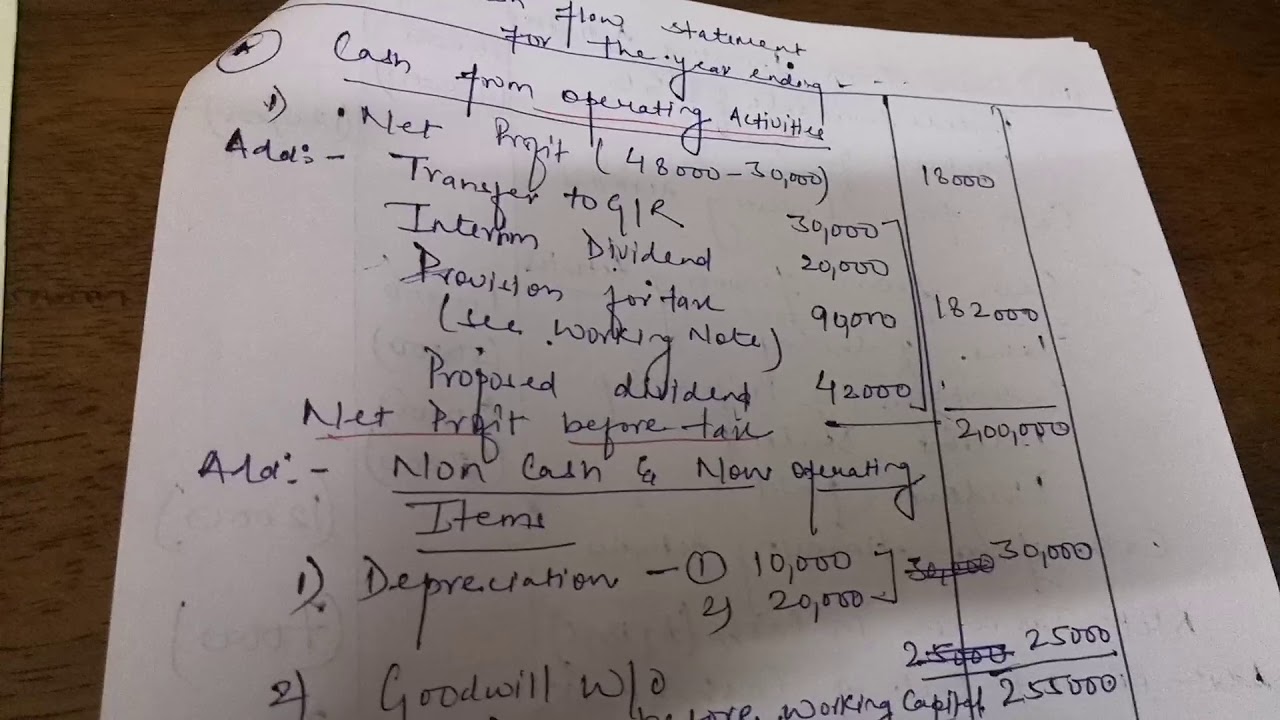 Flow statement
For the year ending - - - -
Cash from operating Activities
1) • Net Profit (48000-30,000) 18000
Add:- Transfer to G/R 30,000
Interim Dividend 20,000
Provision for tax 90,000 182000
(see working Note)
Proposed dividend 42000
Net Profit before tax 2,00,000
Add:- Non Cash & Non operating
Items
1) Depreciation - ① 10,000 30,000 30,000
2) 20,000
2) Goodwill w/o 25000 25000
before working Capital 255000